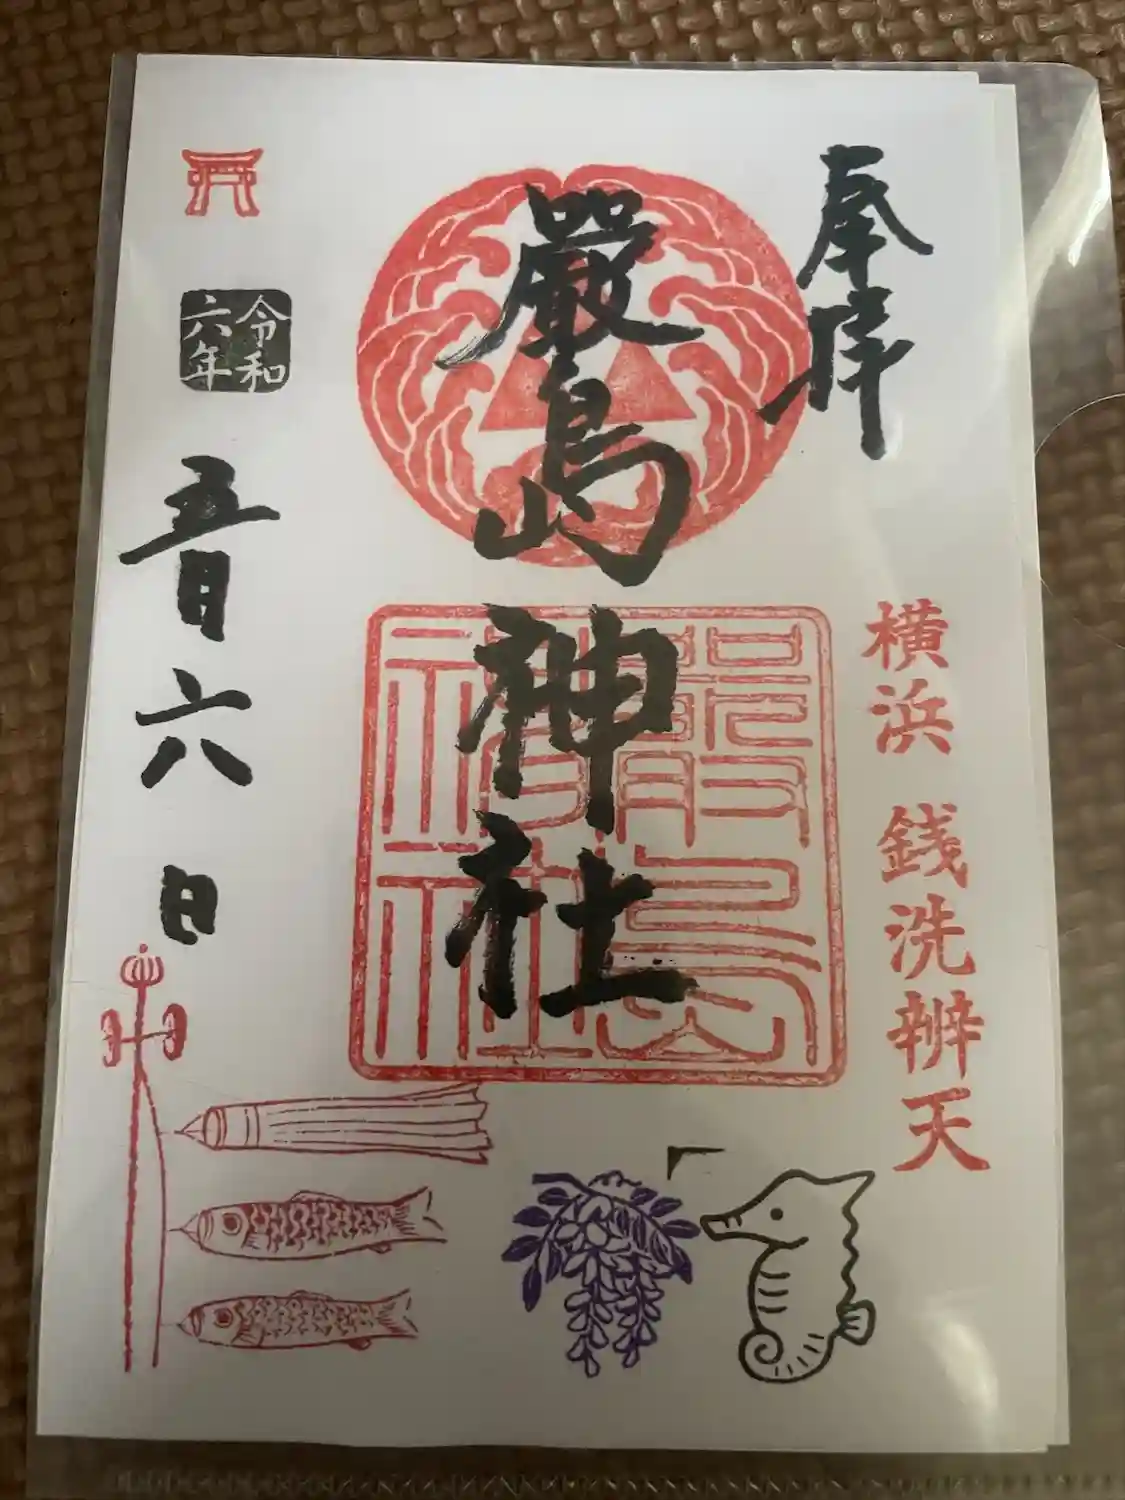 奉拝
横浜 銭洗辨天
嚴島神社
嚴島
神社
令和
六年
五月六日